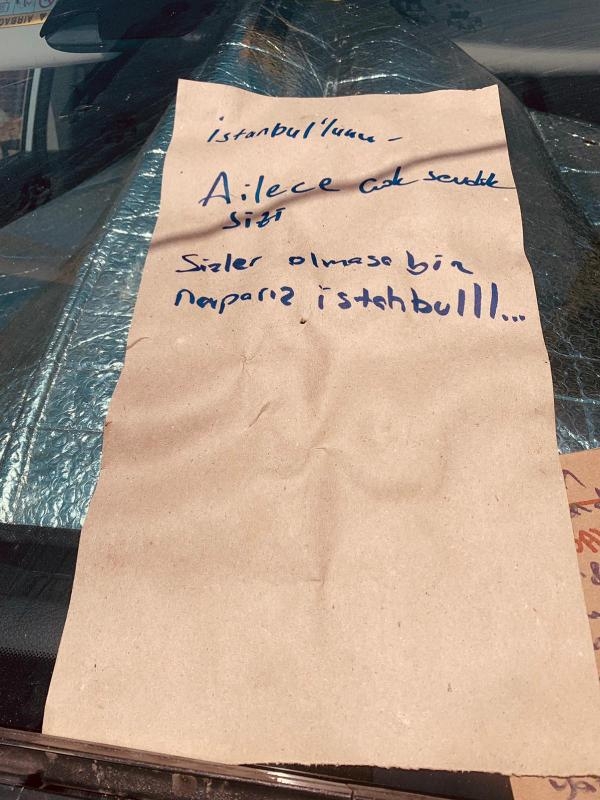 istanbul'luuu -
Ailece çok sevdik
sizi
Sizler olmasa biz
napariz istanbulll...
AIRBAG